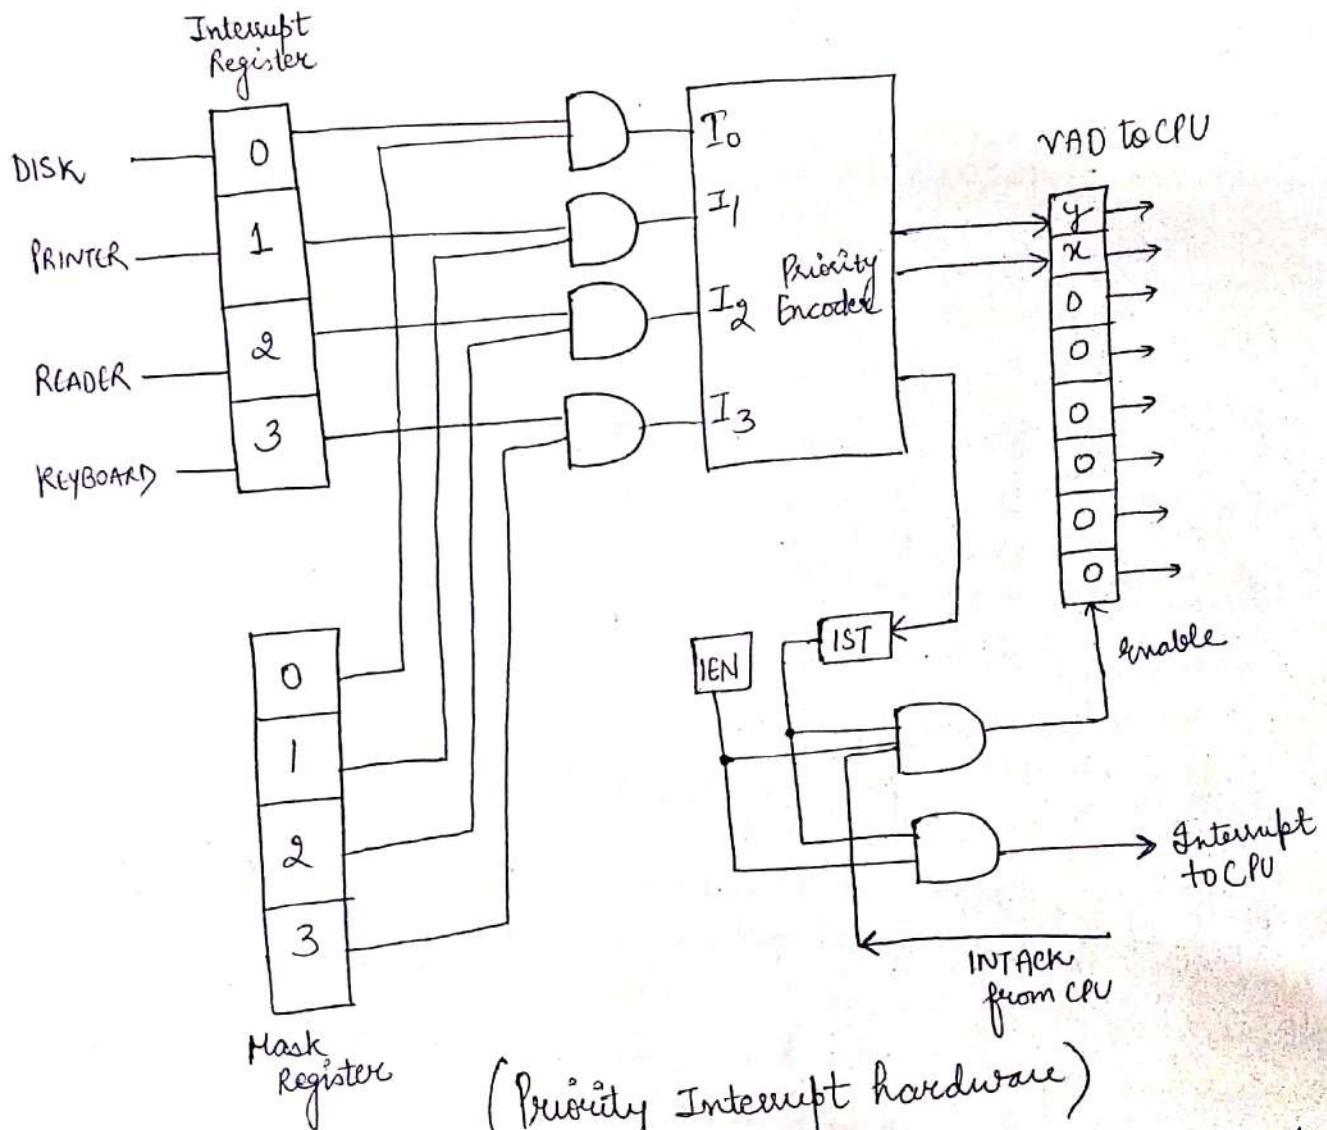 Interrupt
Register
DISK
PRINTER
READER
KEYBOARD
0
1
2
3
I0
I1
I2
I3
Priority
Encoder
VAD to CPU
y
x
0
0
0
0
0
0
enable
IEN
IST
Interrupt
to CPU
INTACK
from CPU
0
1
2
3
Mask
Register
(Priority Interrupt hardware)